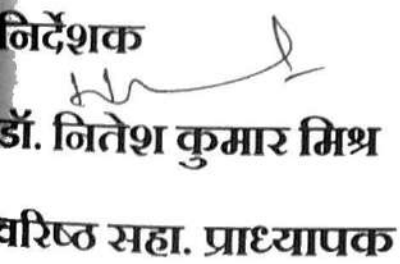 निर्देशक
डॉ. नितेश कुमार मिश्र
वरिष्ठ सहा. प्राध्यापक